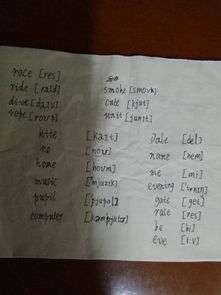 race [res]
ride [raɪd]
dive [daɪv]
rope [rovp]
smoke [smovk]
cute [kjut]
unit [junɪt]
kite [kaɪt]
no [nov]
home [hovm]
music ['mjuzɪk]
pupil [pjupəl]
computer [kəmpjutər]
Dale [del]
name [nem]
me [mi]
evening ['ivnɪŋ]
gate [get]
rate [res]
he [hi]
eve [i:v]